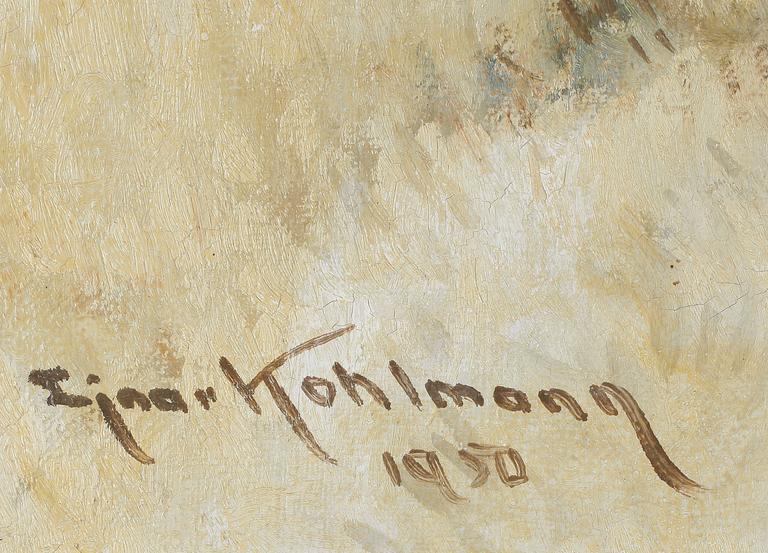 Ejnar Kohlmann
1950